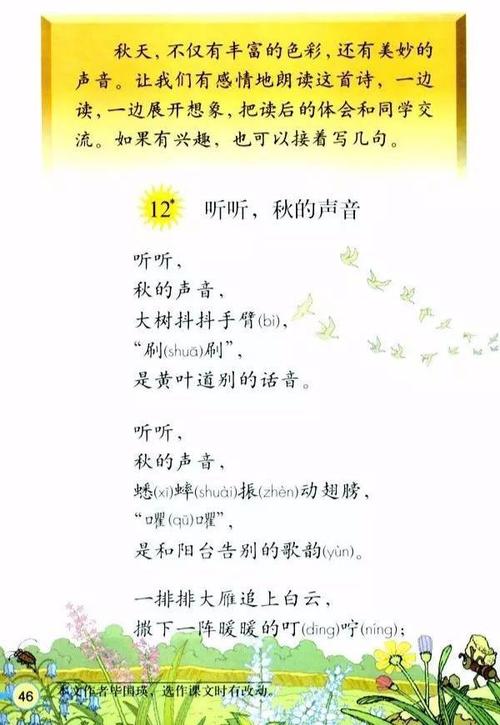 秋天，不仅有丰富的色彩，还有美妙的
声音。让我们有感情地朗读这首诗，一边
读，一边展开想象，把读后的体会和同学交
流。如果有兴趣，也可以接着写几句。
12* 听听，秋的声音
听听，
秋的声音，
大树抖抖手臂(bì)，
“刷(shuā)刷”，
是黄叶道别的话音。
听听，
秋的声音，
蟋(xī)蟀(shuài)振(zhèn)动翅膀，
“㘗(qū)㘗”，
是和阳台告别的歌韵(yùn)。
一排排大雁追上白云，
撒下一阵暖暖的叮(dīng)咛(níng)；
46 本文作者毕国瑛，选作课文时有改动。